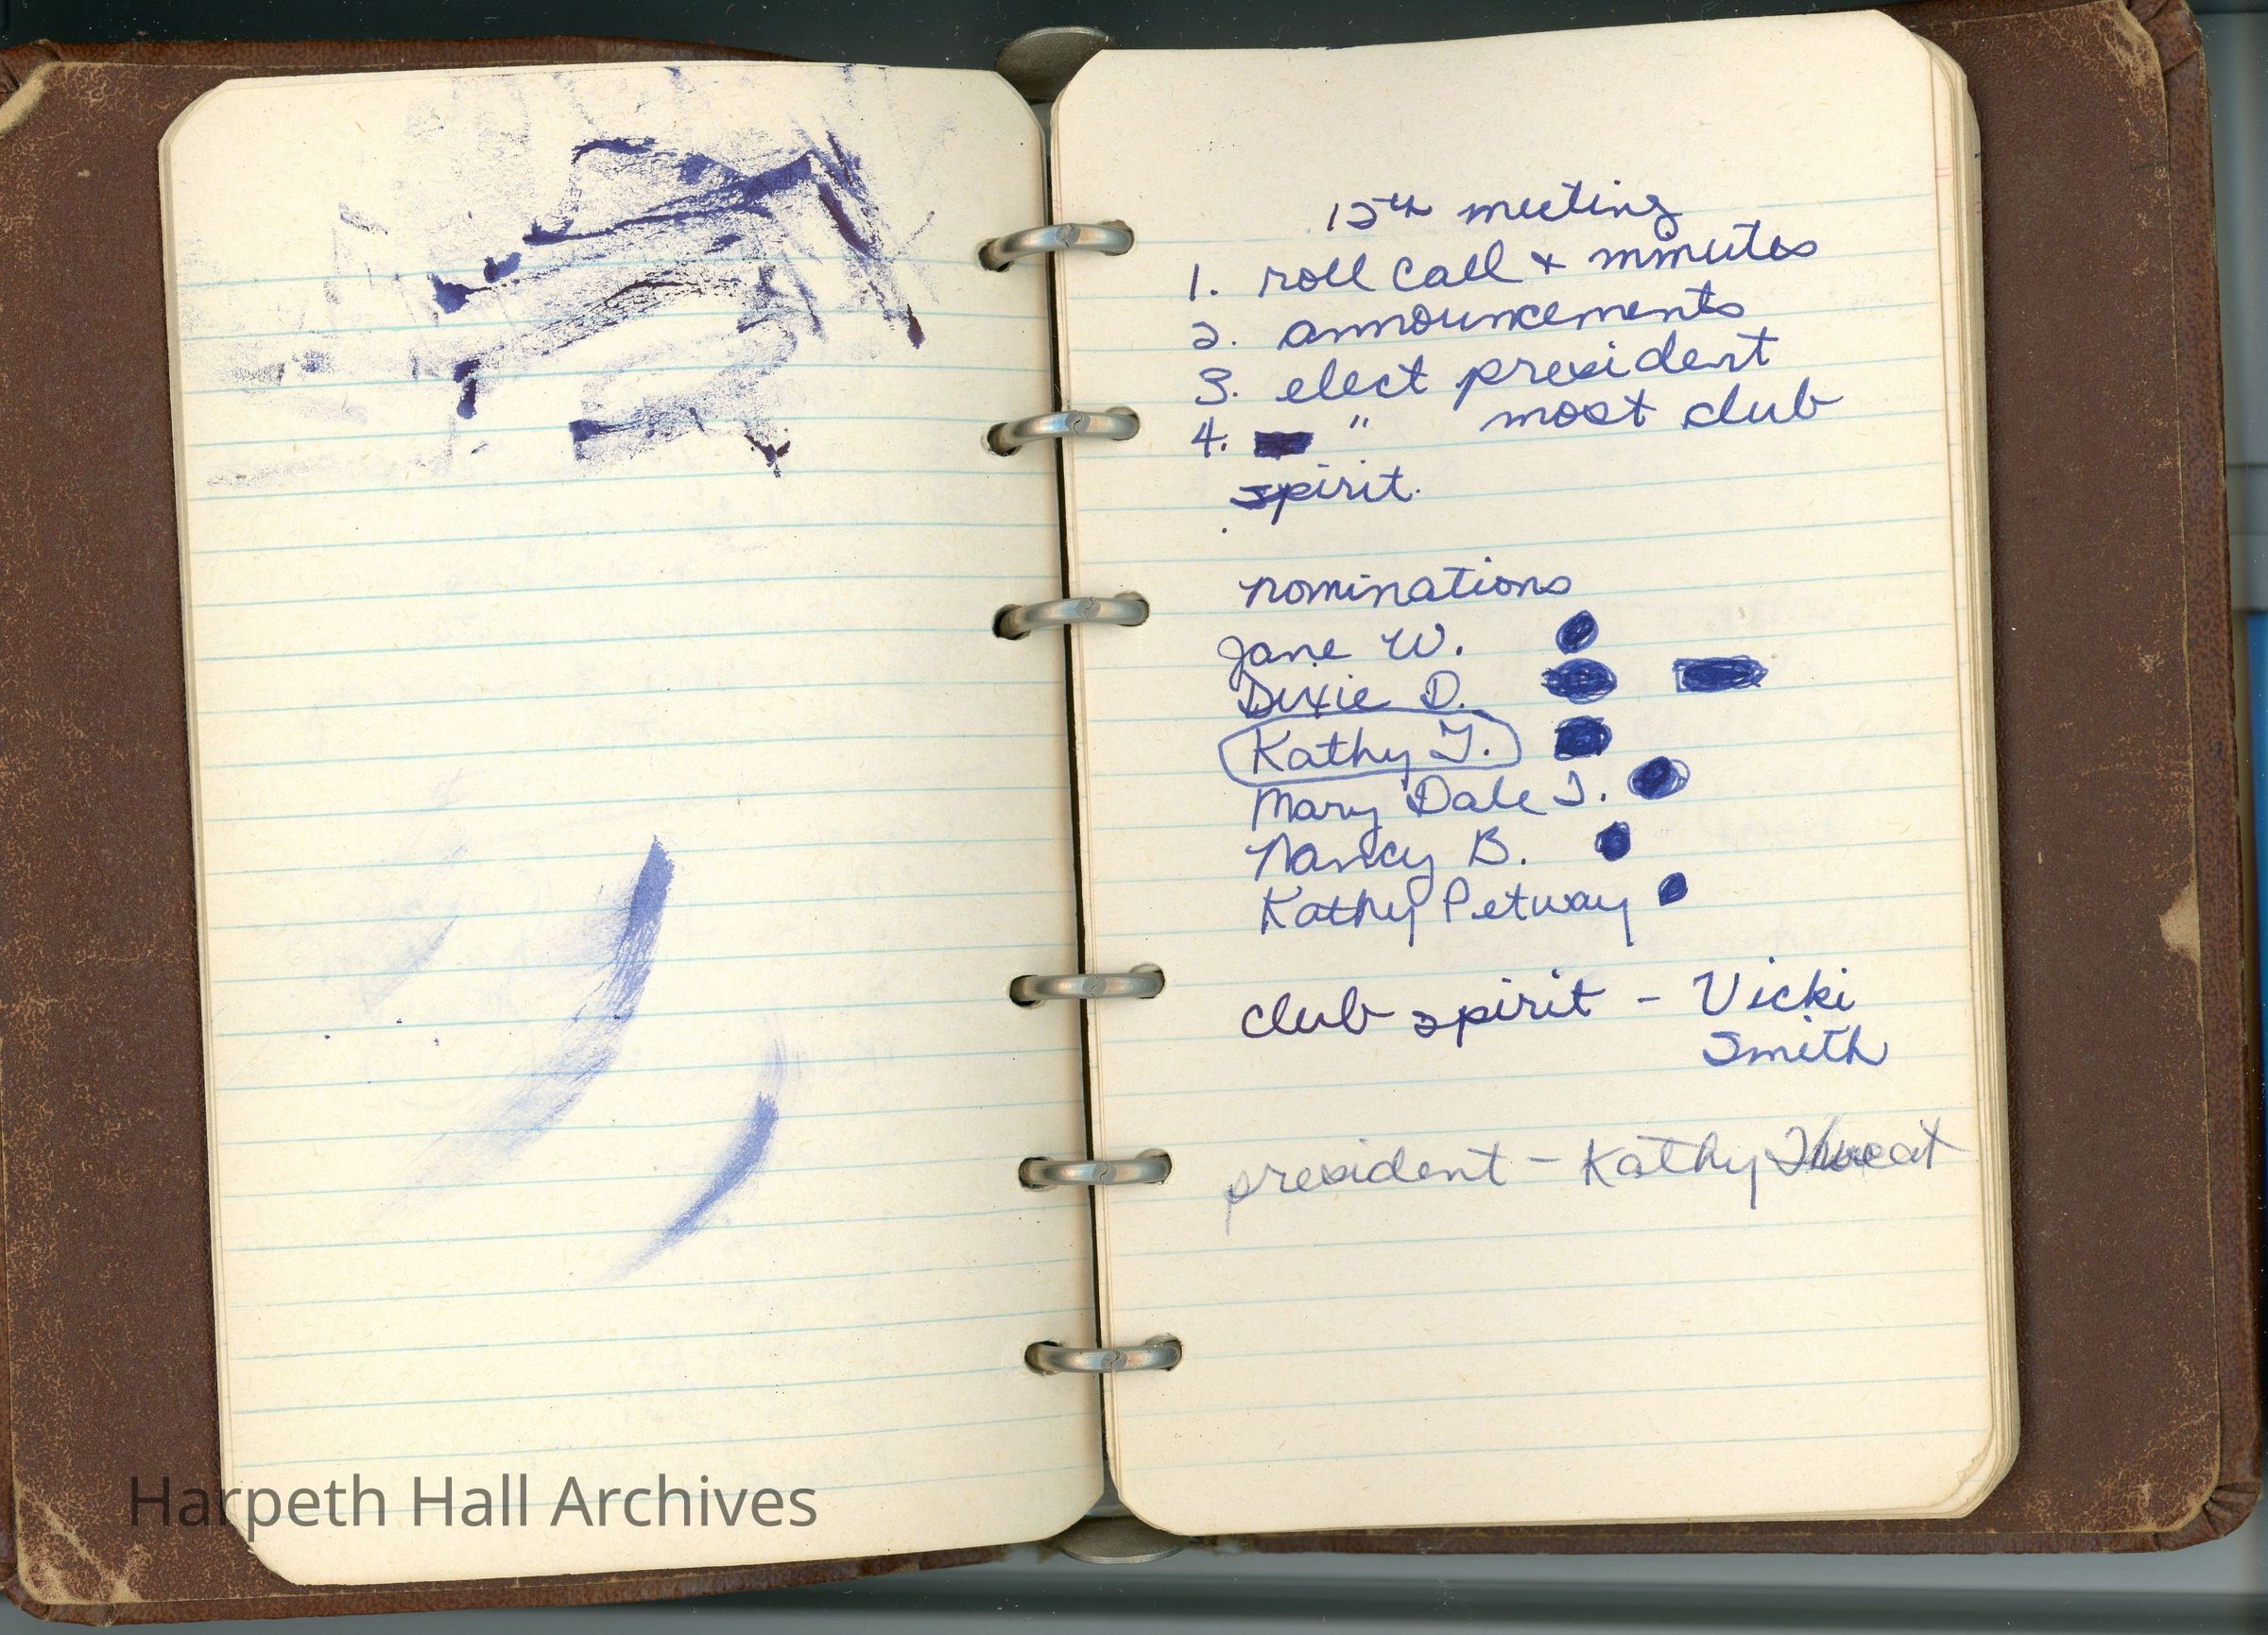 15th meeting
1. roll call + minutes
2. announcements
3. elect president
4. " most club
spirit.
nominations
Jane W.
Dixie D.
Kathy T.
Mary Dale
Nancy B.
Kathy Petway
club spirit - Vicki
Smith
president - Kathy
Harpeth Hall Archives